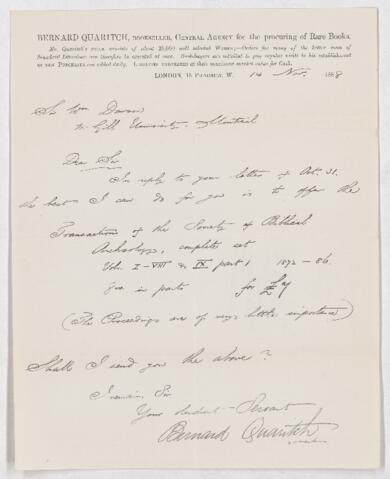 BERNARD QUARITCH, BOOKSELLER, GENERAL AGENCY for the procuring of Rare Books.
Mr. Quaritch's stock consists of about 25,000 well selected Works—Orders for many of the better sorts of
Standard Literature can therefore be executed at once. Booksellers are invited to pay regular visits to his establishment
as new PURCHASES are added daily. LIBRARIES PURCHASED at their
LONDON, 15 PICCADILLY, W. 14 Nov. 1888
Sir Wm Dawson
McGill University, Montreal
Dear Sir
In reply to your letter of Oct. 31.
the best I can do for you is to offer the
Transactions of the Society of Biblical
Archæology, complete set
Vols. I-VIII & IX part 1 1872-86.
in parts for £
(The Proceedings are of very little importance)
Shall I send you the above?
I remain, Sir
Your obedient Servant
Bernard Quaritch